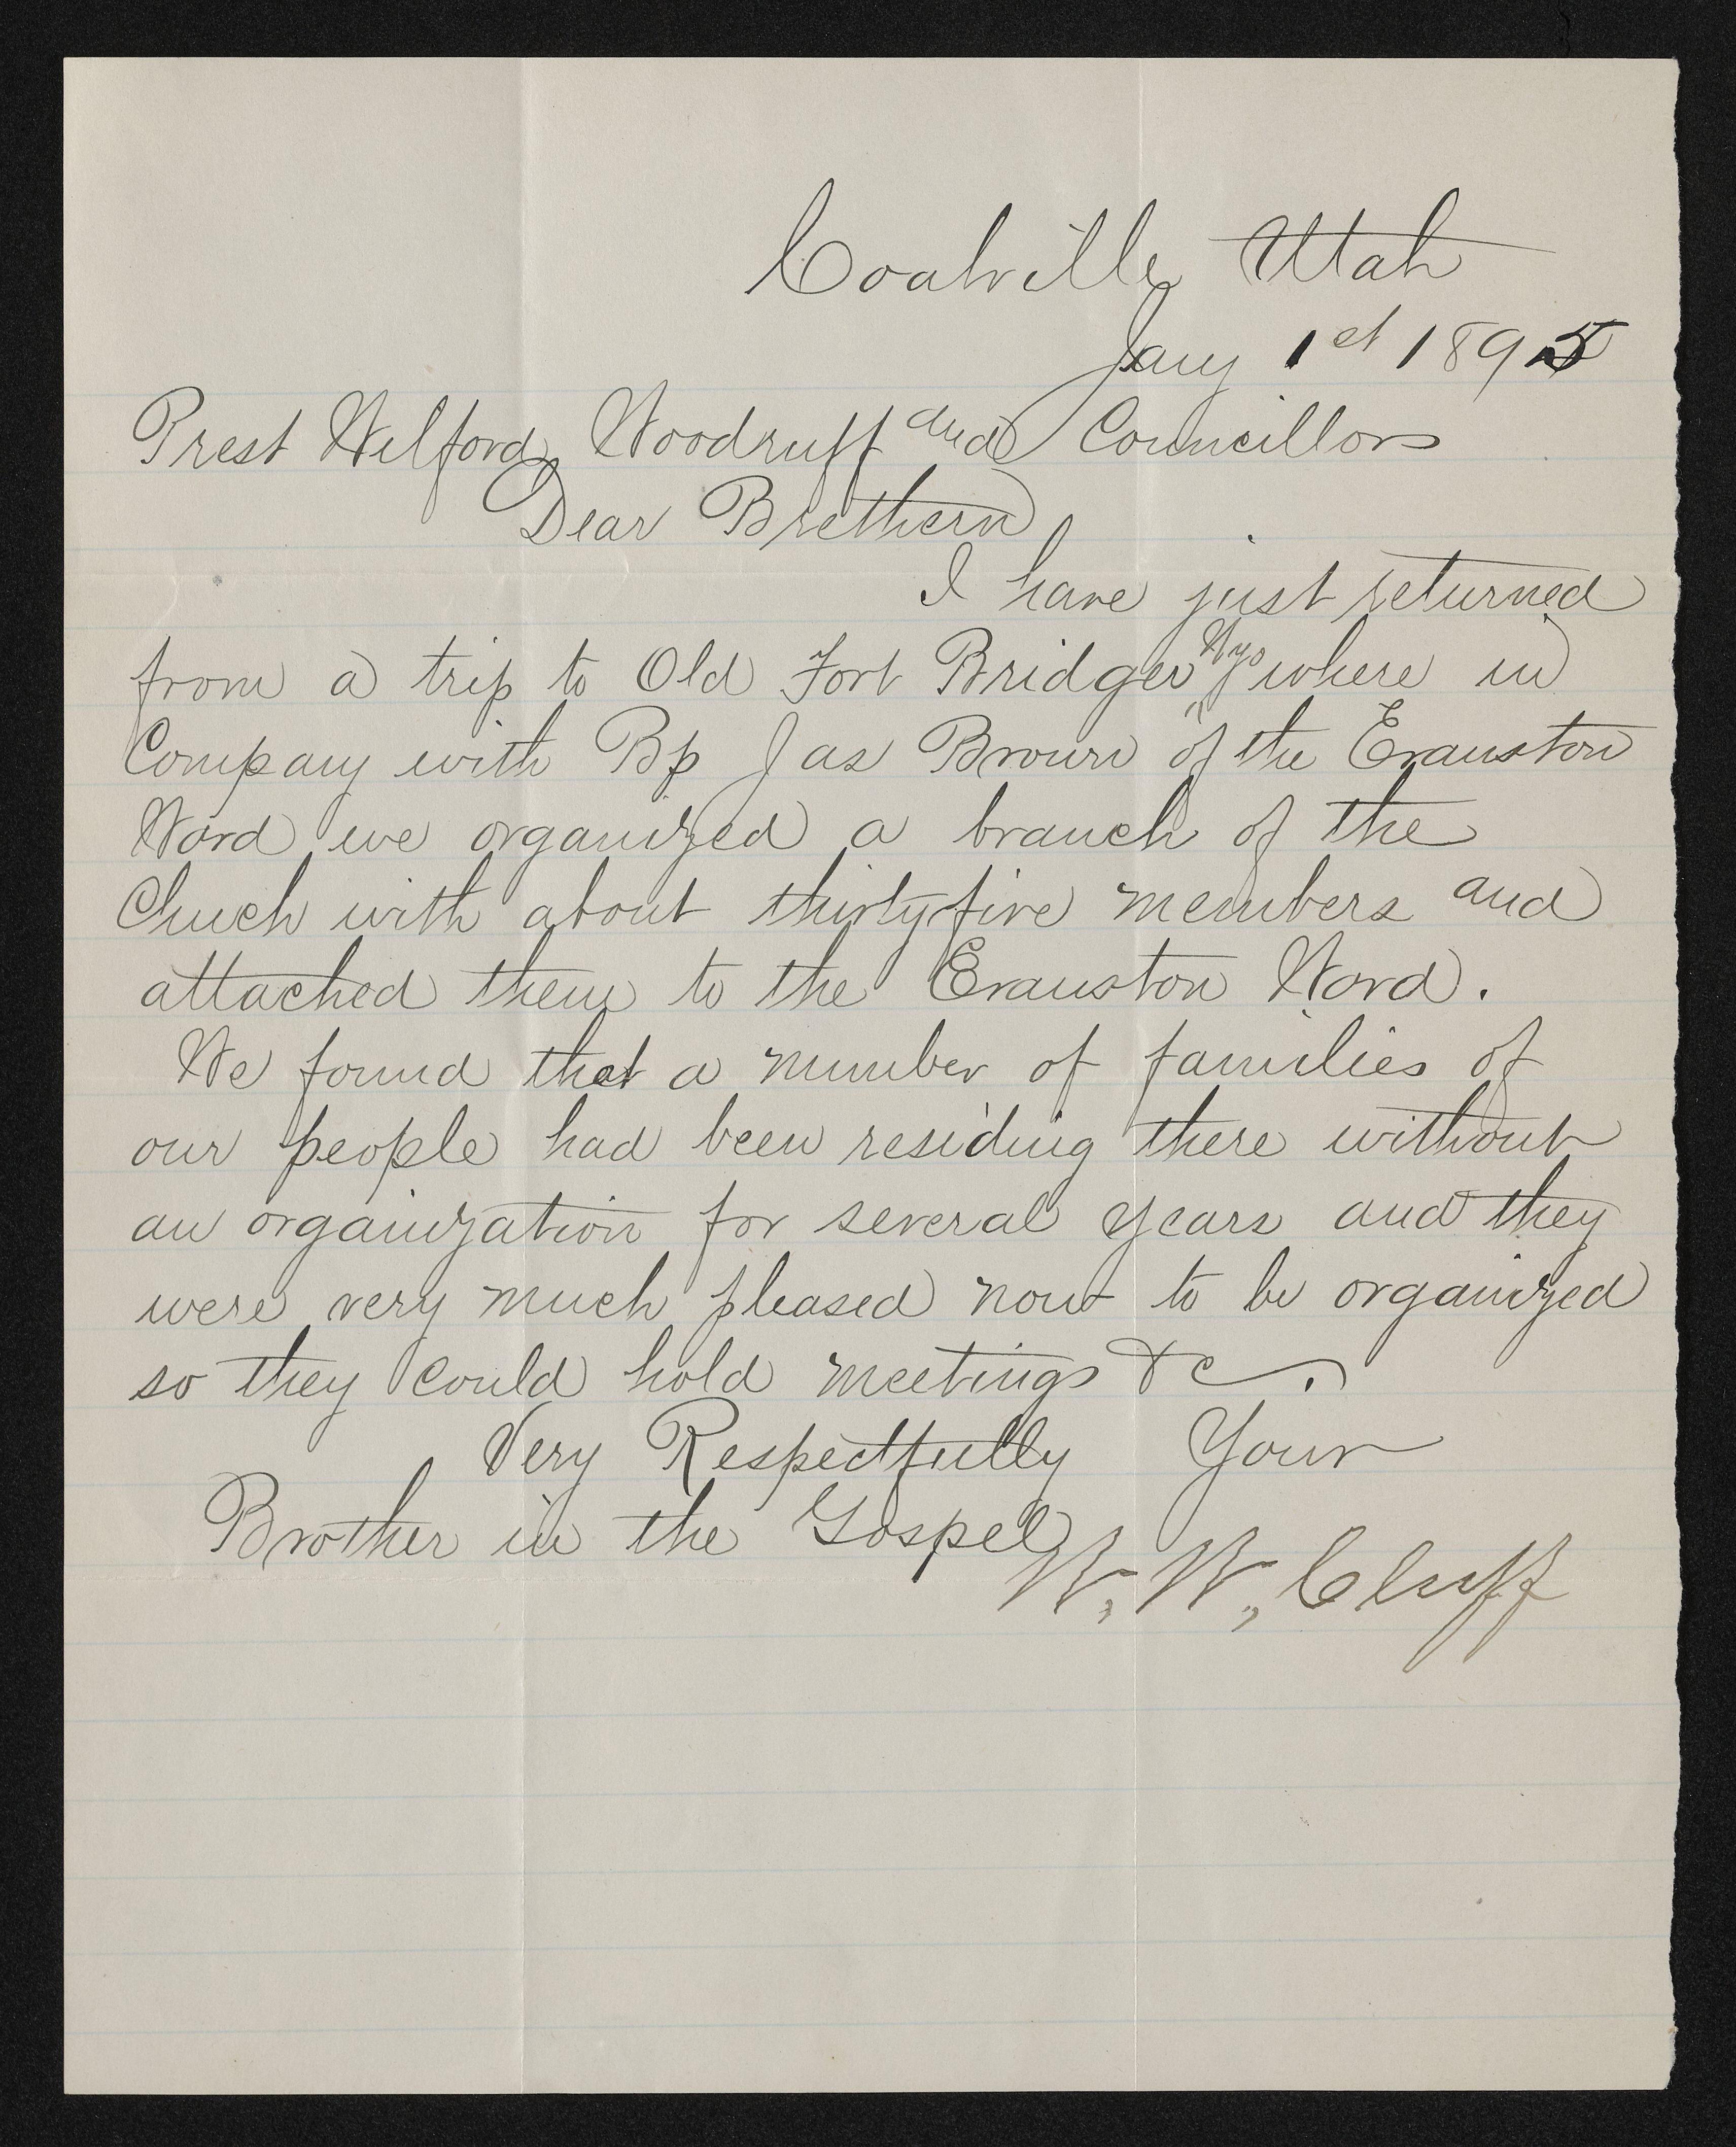 Coalville Utah
Jany 1st 1895
Prest Wilford Woodruff and Councillors
Dear Brethern
I have just returned
from a trip to Old Fort Bridger Wyo where in
Company with Bp Jas Brown of the Evanston
Ward we organized a branch of the
Chuch with about thirtyfive members and
attached them to the Evanston Ward.
We found that a number of families of
our people had been residing there without
an organization for several years and they
were very much pleased now to be organized
so they could hold meetings &c.
Very Respectfully Your
Brother in the Gospel
W. W. Cluff